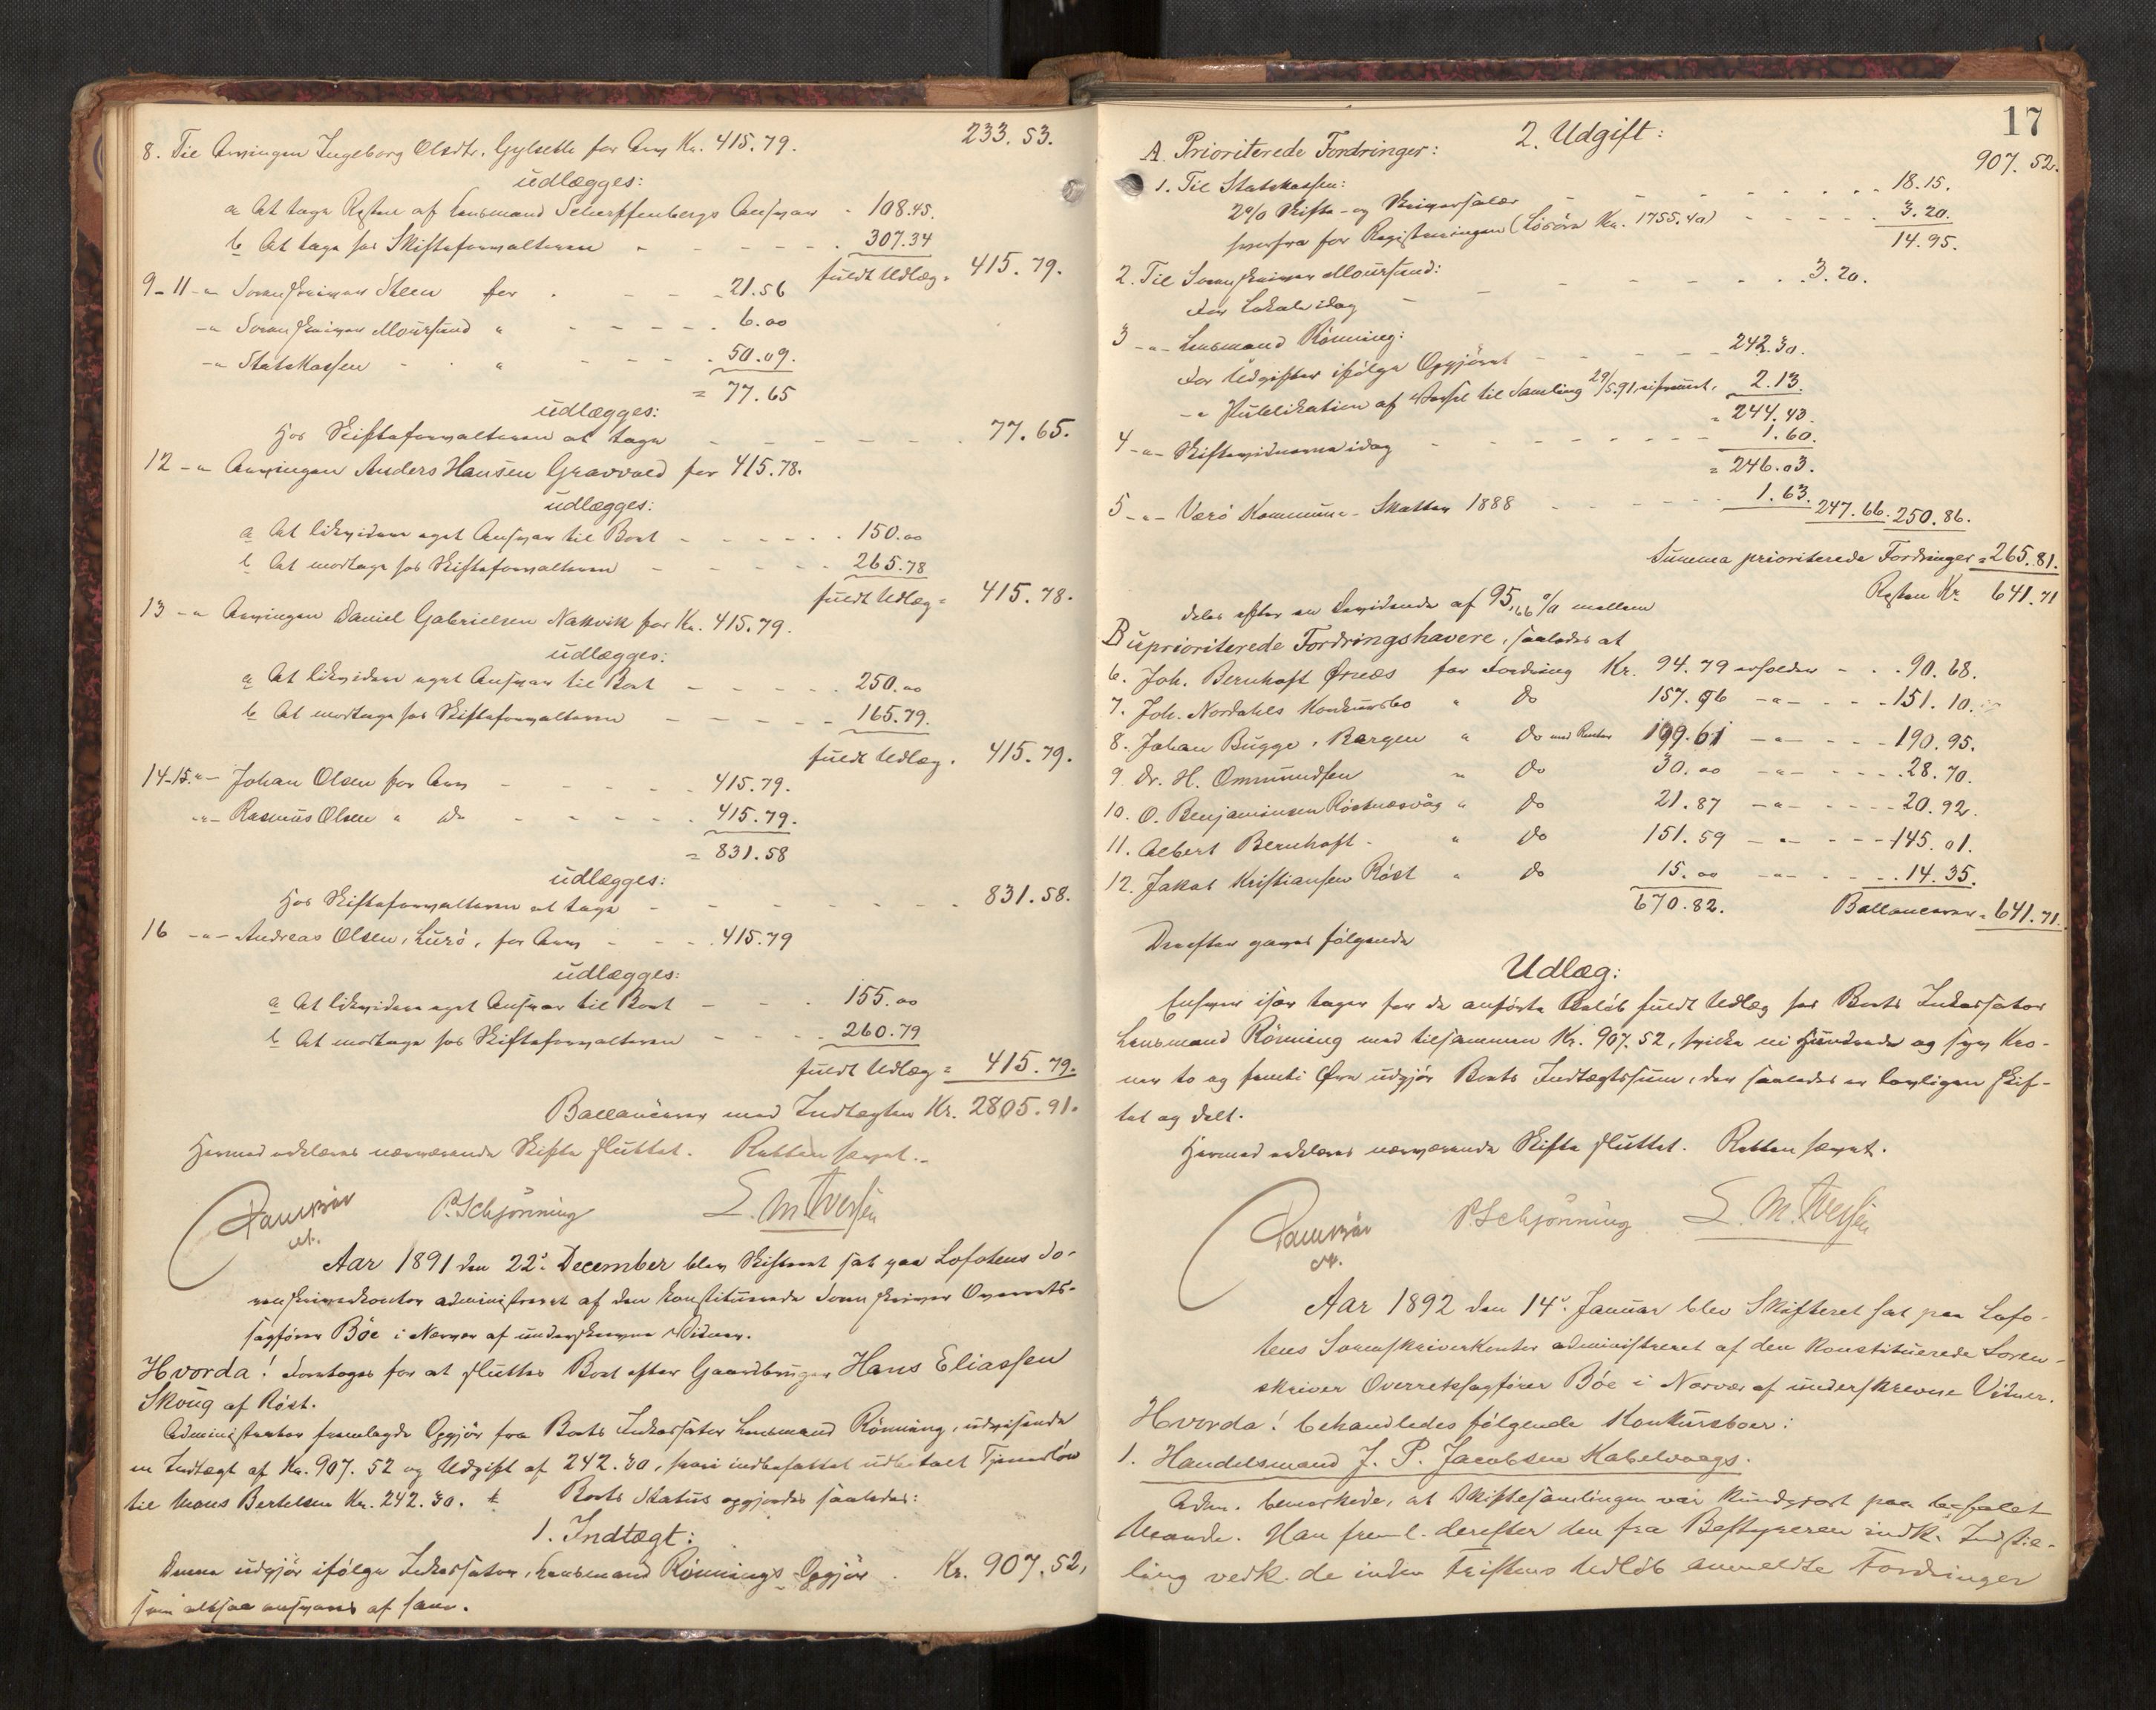 233.53.
8. Til Arvingen Ingeborg Olsdtr. Gylseth for Arv Kr. 415.79.
udlægges:
a At tage Resten af Lensmand Scharffenbergs Ansvar - 108.45.
b At tage hos Skifteforvalteren - - - 307.34
fuldt Udlæg = 415.79.
9-11 -"- Sorenskriver Steen for - - - 21.56
-"- Sorenskriver Moursund " - - - 6.00
-"- Statskassen - " - - - 50.09.
= 77.65
udlægges:
Hos Skifteforvalteren at tage - - - 77.65.
12 -"- Arvingen Anders Hansen Gravvold for 415.78.
udlægges:
a At likvidere eget Ansvar til Boet - - - 150.00
b At modtage hos Skifteforvalteren - - - 265.78
fuldt Udlæg = 415.78.
13 -"- Arvingen Daniel Gabrielsen Nakkvik for Kr. 415.79.
udlægges:
a At likvidere eget Ansvar til Boet - - - 250.00
b At modtage hos Skifteforvalteren - - - 165.79.
fuldt Udlæg. 415.79.
14-15 -"- Johan Olsen for Arv - - - 415.79.
-"- Rasmus Olsen " do - - - 415.79.
= 831.58
udlægges:
Hos Skifteforvalteren at tage - - - 831.58.
16 -"- Andreas Olsen, Lurö, for Arv - - - 415.79
udlægges:
a At likvidere eget Ansvar til Boet - - - 155.00
b At modtage hos Skifteforvalteren - - - 260.79
fuldt Udlæg = 415.79.
Ballancerer med Indtægten Kr. 2805.91.
Hermed erklæres nærværende Skifte sluttet. Retten hævet.
P. Schjönning L. M. Iversen
Aar 1891 den 22de December blev Skifteret sat paa Lofotens So-
renskriverkontor administreret af den konstituerede Sorenskriver Overrets-
sagfører Böe i Nærvær af underskrevne Vidner.
Hvorda! Foretoges for at sluttes Boet efter Gaardbruger Hans Eliassen
Skoug af Röst.
Administrator fremlagde Opgjör fra Boets Inkassator Lensmand Rönning, udvisende
en Indtægt af Kr. 907.52 og Udgift af 242.30, hvori indbefattet udbetalt Tjenerlön
til Mons Bertelsen Kr. 242.30. Boets Status opgjordes saaledes:
1. Indtægt:
Denne udgjör ifölge Inkassator, Lensmand Rönnings Opgjör . Kr. 907.52,
som altsaa ansvares af ham.
17
2. Udgift:
907.52.
A. Prioriterede Fordringer:
1. Til Statskassen:
2% Skifte- og Skriversalær - - - 18.15.
herfra for Registreringen (Lösöre Kr. 1755.40) - - - 3.20.
14.95.
2. Til Sorenskriver Moursund:
For Lokale idag - - - 3.20.
3 -"- Lensmand Rönning:
For Udgifter ifölge Opgjöret - - - 242.30.
-"- Publikation af Varsel til Samling 29/5.91, - 2.13.
= 244.43.
4 -"- Skiftevidnerne idag - - - 1.60.
= 246.03.
5 -"- Værö Kommune - Skatter 1888 - - - 1.63. 247.66. 250.86.
Summa prioriterede Fordringer = 265.81.
Resten Kr. 641.71
deles efter en Dividende af 95,66 % mellem
B uprioriterede Fordringshavere, saaledes at
6. Joh. Bernhoft Örnes for Fordring Kr. 94.79 erholder - - 90.68.
7. Joh. Nordahls Konkursbo " do 157.96 -"- - - 151.10.
8. Johan Bugge, Bergen " do med Renter 199.61 -"- - - 190.95.
9 Dr. H. Ommundsen " do 30.00 -"- - - 28.70.
10. O. Benjaminsen Röstnesvåg " do 21.87 -"- - - 20.92.
11. Albert Bernhoft - " do 151.59 -"- - - 145.01.
12. Jakob Kristiansen Röst " do 15.00 -"- - - 14.35.
670.82. Ballancerer = 641.71.
Derefter gaves følgende
Udlæg:
Enhver især tager for de anförte Belöb fuldt Udlæg hos Boets Inkassator
Lensmand Rönning med tilsammen Kr. 907.52, hvilke ni Hundrede og syv Kro-
ner to og femti Öre udgjör Boets Indtægtssum, der saaledes er lovligen skif-
tet og delt.
Hermed erklæres nærværende Skifte sluttet. Retten hævet.
P. Schjönning L. M. Iversen
Aar 1892 den 14de Januar blev Skifteret sat paa Lofo-
tens Sorenskriverkontor administreret af den konstituerede Soren-
skriver Overretssagfører Böe i Nærvær af underskrevne Vidner.
Hvorda! behandledes følgende Konkursboer:
1. Handelsmand J. P. Jacobsen Kabelvaag.
Adm. bemærkede, at Skiftesamlingen var kundgjort paa befalet
Maade. Han freml. derefter den fra Bestyreren indk. Indstil-
ling vedk. de inden Fristens Udløb anmeldte Fordringer